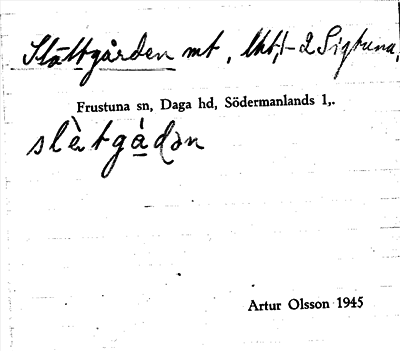 Slättgården mt, lht, 1-2 Sigtuna,
Frustuna sn, Daga hd, Södermanlands l,.
slètgádən
Artur Olsson 1945